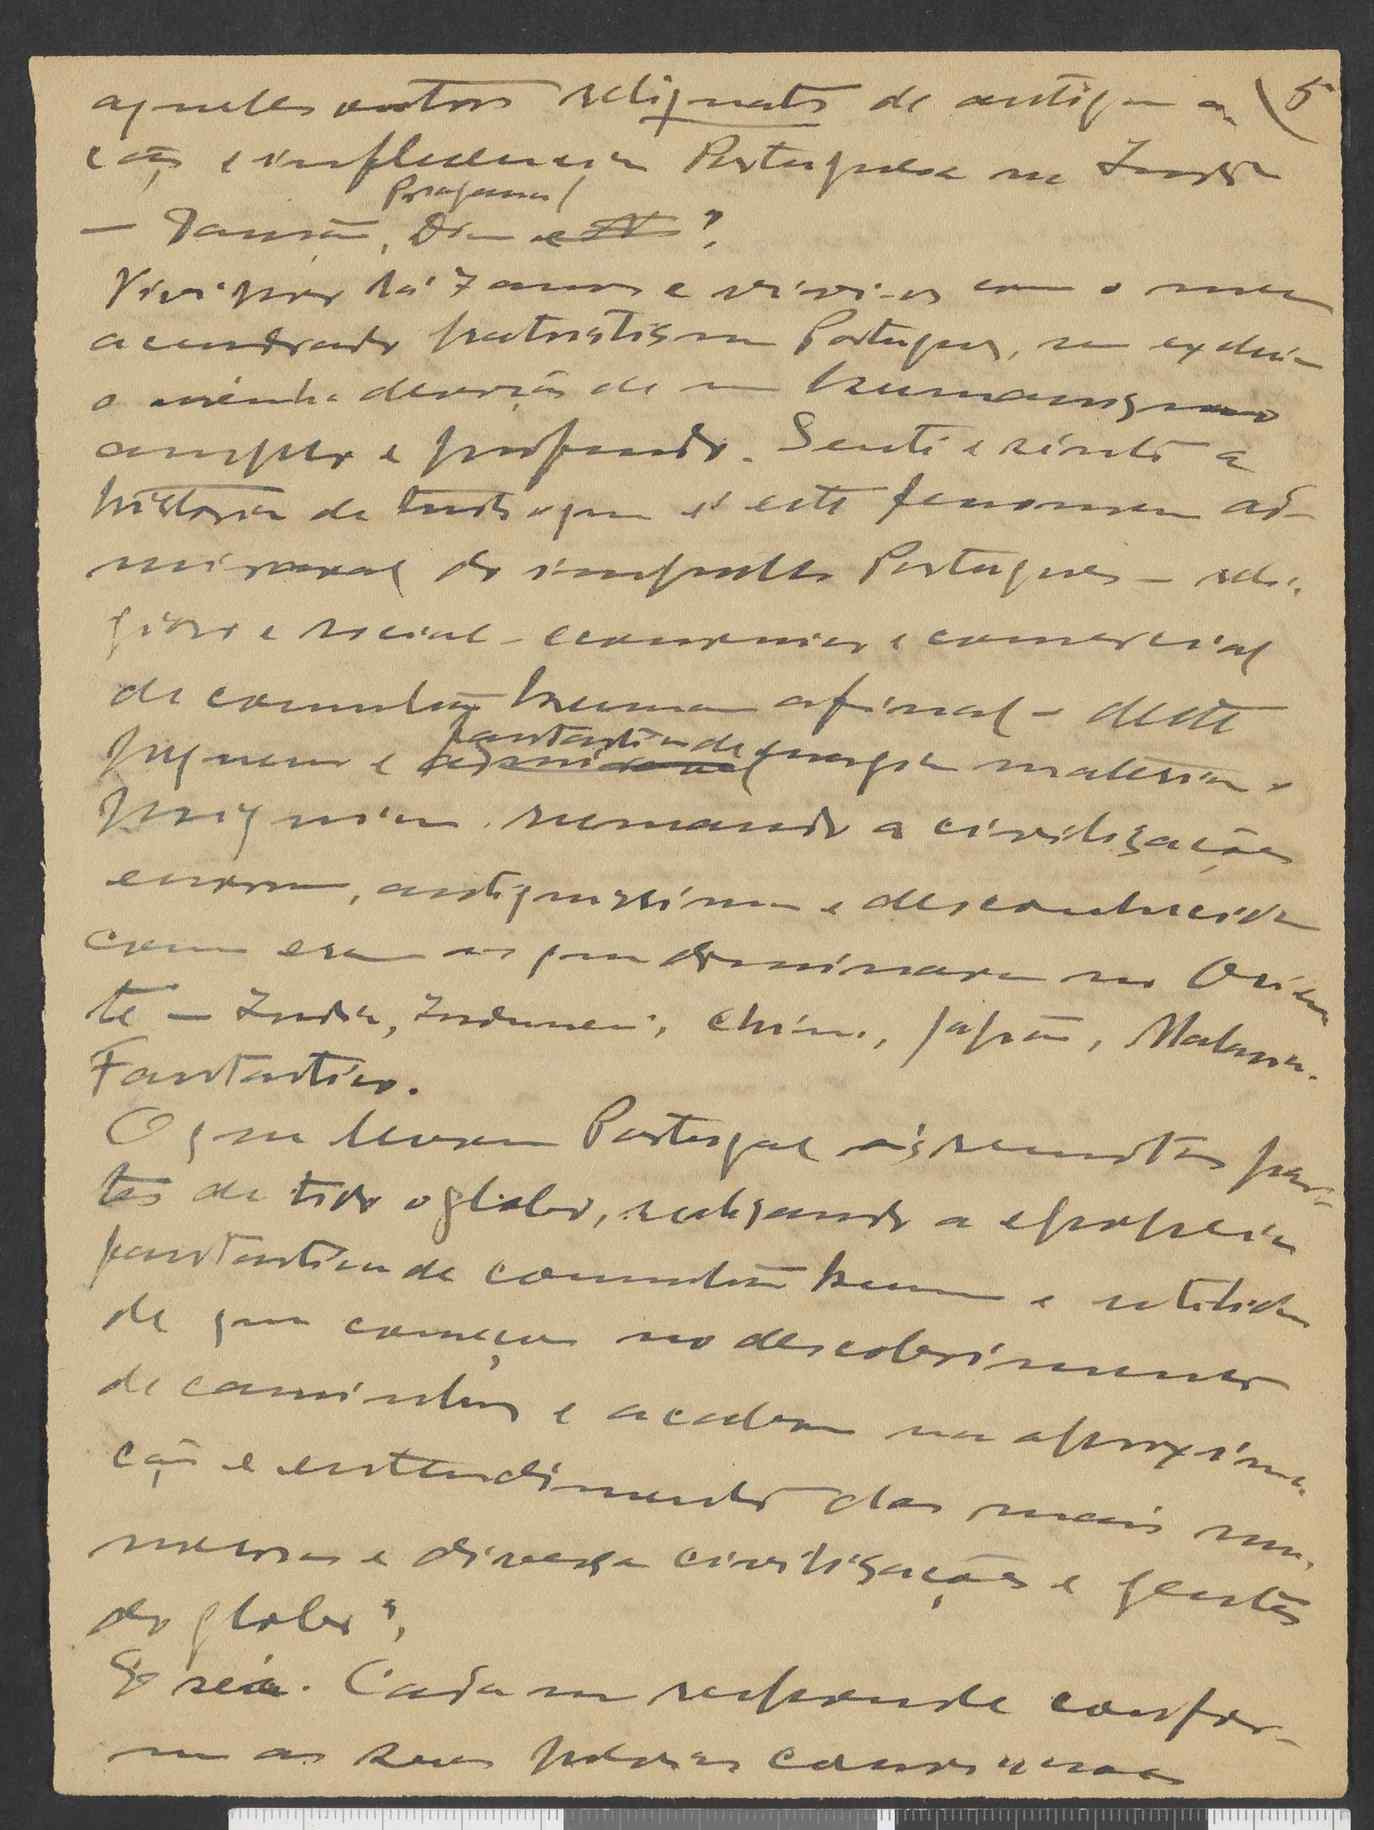 aqueles outros reliquats de antiga a- 5
ção e influencia Portuguesa na India
— Damão, Pragana, Diu e ?
Vivi por lá 7 anos e vivi-os com o meu
acendrado patriotismo Portugues, sem excluir
a minha devoção de um humanismo
amplo e profundo. Senti e sinto a
história de tudo o que é este fenomeno ad-
miravel do impulso Portugues — reli-
gioso e social — economico e comercial
de comunhão humana afinal — deste
pequeno e fantastico de energia materia e
rumando a civilizações
enormes, antiquissimas e desconhecidas
como eram as que dominavam no Orien-
te — India, Indonesia, China, Japão, Malasia.
Fantastico.
O que levou Portugal ás remotas par-
tes de todo o globo, realizando a epopeia
fantastica de comunhão humana e utilida-
de que começou no descobrimento
de caminhos e acabou na aproxima-
ção e entendimento das mais nu-
merosas e diversas civilizações e gentes
do globo?
Cada um responde confor-
me as suas